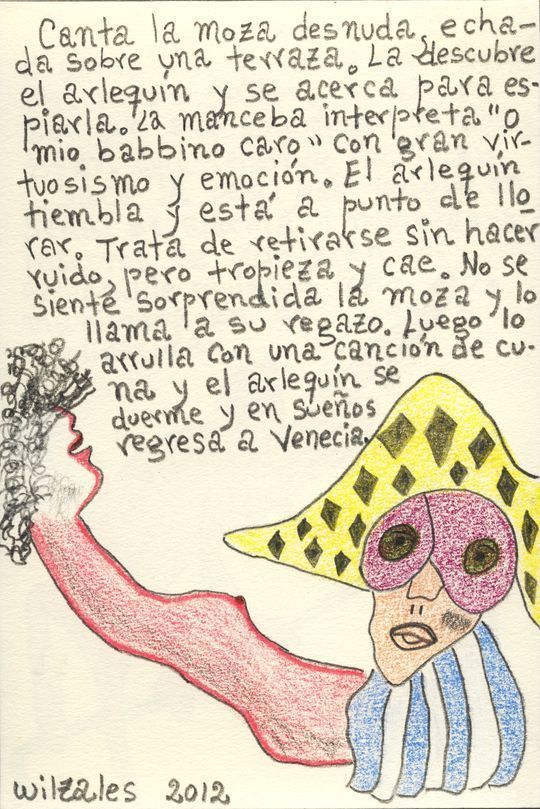 Canta la moza desnuda, echa-
da sobre una terraza. La descubre
el arlequín y se acerca para es-
piarla. La manceba interpreta "O
mio babbino caro" con gran vir-
tuosismo y emoción. El arlequín
tiembla y está a punto de llo
rar. Trata de retirarse sin hacer
ruido, pero tropieza y cae. No se
siente sorprendida la moza y lo
llama a su regazo. Luego lo
arrulla con una canción de cu-
na y el arlequín se
duerme y en sueños
regresa a Venecia.
wilzales 2012